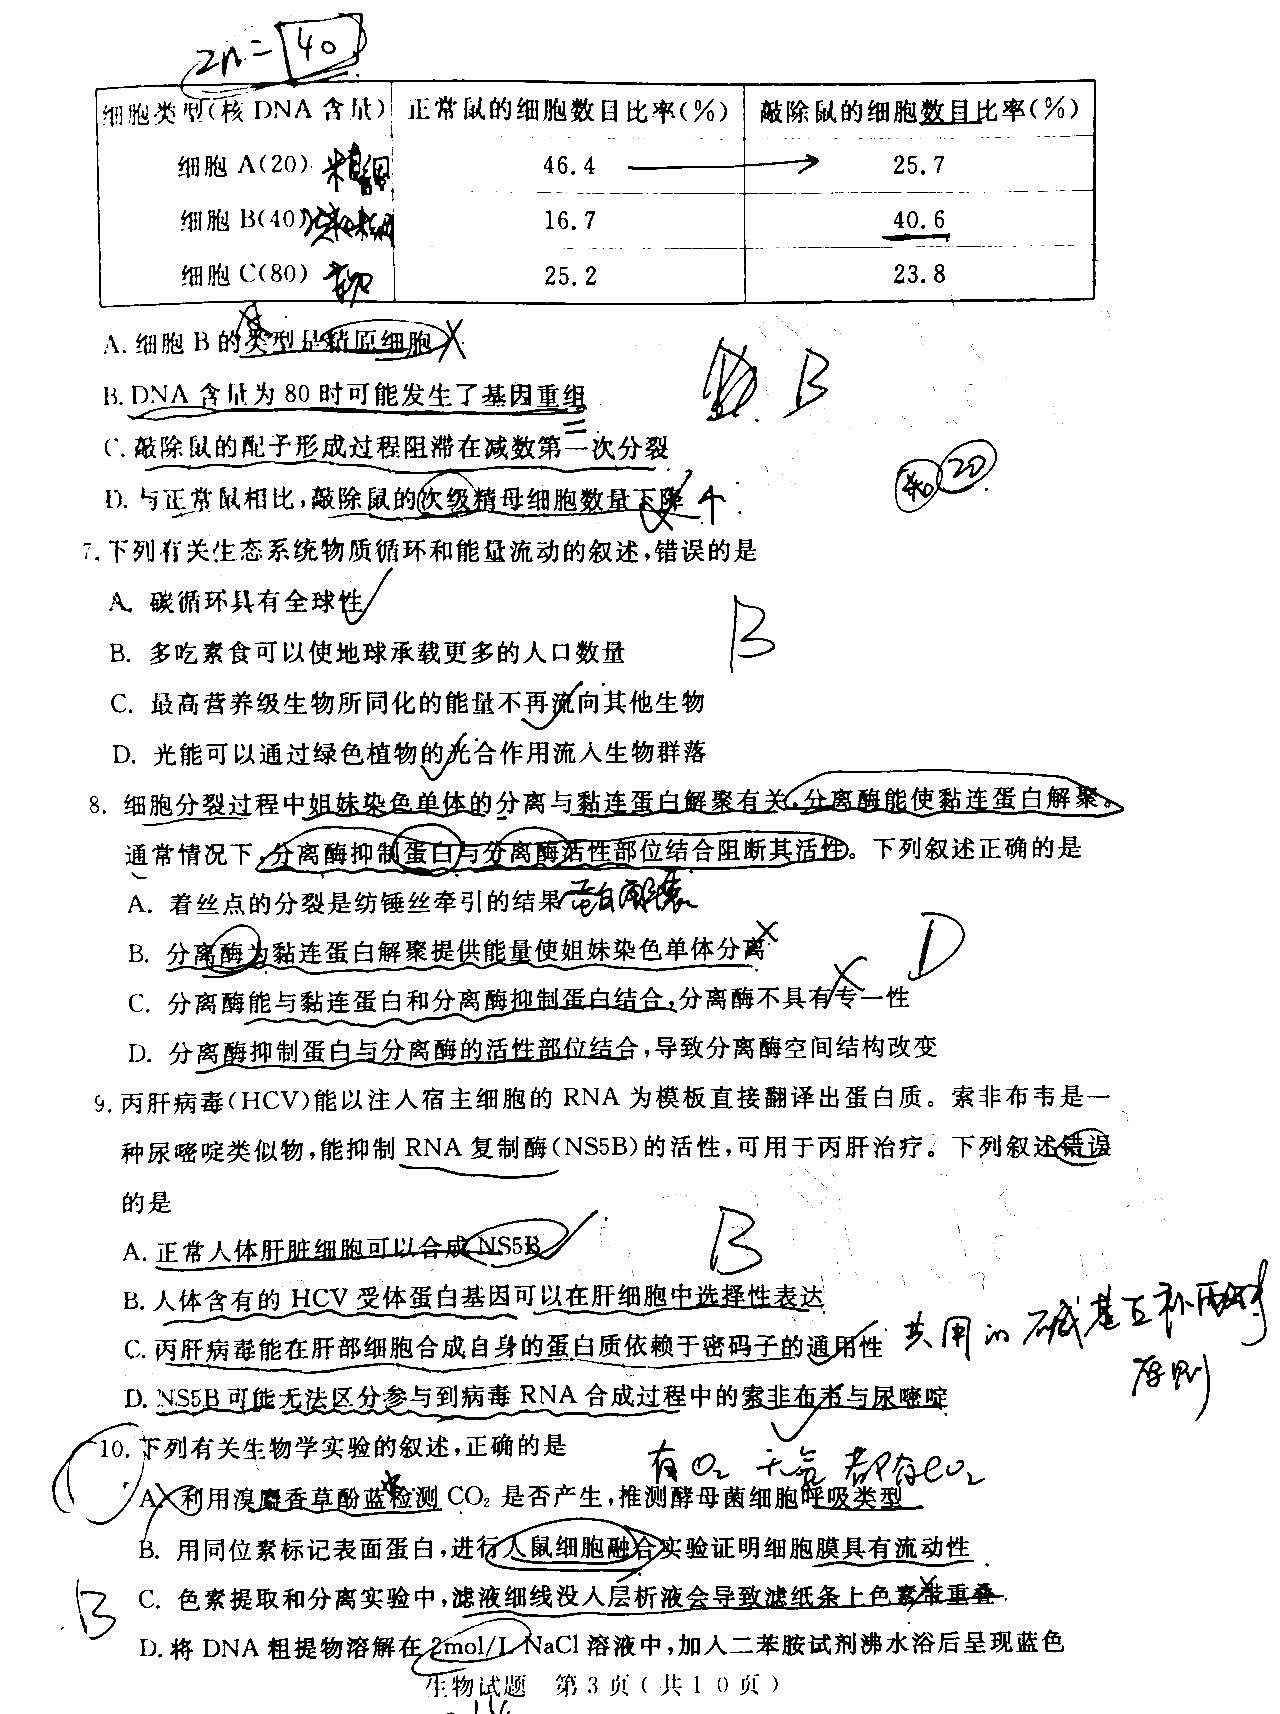 2n=40
细胞类型(核 DNA 含量) 正常鼠的细胞数目比率(%) 敲除鼠的细胞数目比率(%)
细胞 A(20) 精细 46.4 25.7
细胞 B(40) 16.7 40.6
细胞 C(80) 25.2 23.8
A.细胞 B 的类型是精原细胞
B.DNA 含量为 80 时可能发生了基因重组
B
C.敲除鼠的配子形成过程阻滞在减数第一次分裂
40 20
D.与正常鼠相比,敲除鼠的次级精母细胞数量下降 ↑
7.下列有关生态系统物质循环和能量流动的叙述,错误的是
A. 碳循环具有全球性
B. 多吃素食可以使地球承载更多的人口数量
B
C. 最高营养级生物所同化的能量不再流向其他生物
D. 光能可以通过绿色植物的光合作用流入生物群落
8. 细胞分裂过程中姐妹染色单体的分离与黏连蛋白解聚有关,分离酶能使黏连蛋白解聚。
通常情况下,分离酶抑制蛋白与分离酶活性部位结合阻断其活性。下列叙述正确的是
A. 着丝点的分裂是纺锤丝牵引的结果 蛋白解聚
B. 分离酶为黏连蛋白解聚提供能量使姐妹染色单体分离
D
C. 分离酶能与黏连蛋白和分离酶抑制蛋白结合,分离酶不具有专一性
D. 分离酶抑制蛋白与分离酶的活性部位结合,导致分离酶空间结构改变
9.丙肝病毒(HCV)能以注入宿主细胞的 RNA 为模板直接翻译出蛋白质。索非布韦是一
种尿嘧啶类似物,能抑制 RNA 复制酶(NS5B)的活性,可用于丙肝治疗。下列叙述错误
的是
A.正常人体肝脏细胞可以合成 NS5B
B
B.人体含有的 HCV 受体蛋白基因可以在肝细胞中选择性表达
C.丙肝病毒能在肝部细胞合成自身的蛋白质依赖于密码子的通用性 共用的碱基互补配对
原则
D.NS5B 可能无法区分参与到病毒 RNA 合成过程中的索非布韦与尿嘧啶
10.下列有关生物学实验的叙述,正确的是
有O₂ 无氧 都有CO₂
A.利用溴麝香草酚蓝检测 CO₂ 是否产生,推测酵母菌细胞呼吸类型
B. 用同位素标记表面蛋白,进行人鼠细胞融合实验证明细胞膜具有流动性
C. 色素提取和分离实验中,滤液细线没入层析液会导致滤纸条上色素带重叠
B
D.将 DNA 粗提物溶解在 2mol/L NaCl 溶液中,加入二苯胺试剂沸水浴后呈现蓝色
生物试题 第3页(共10页)